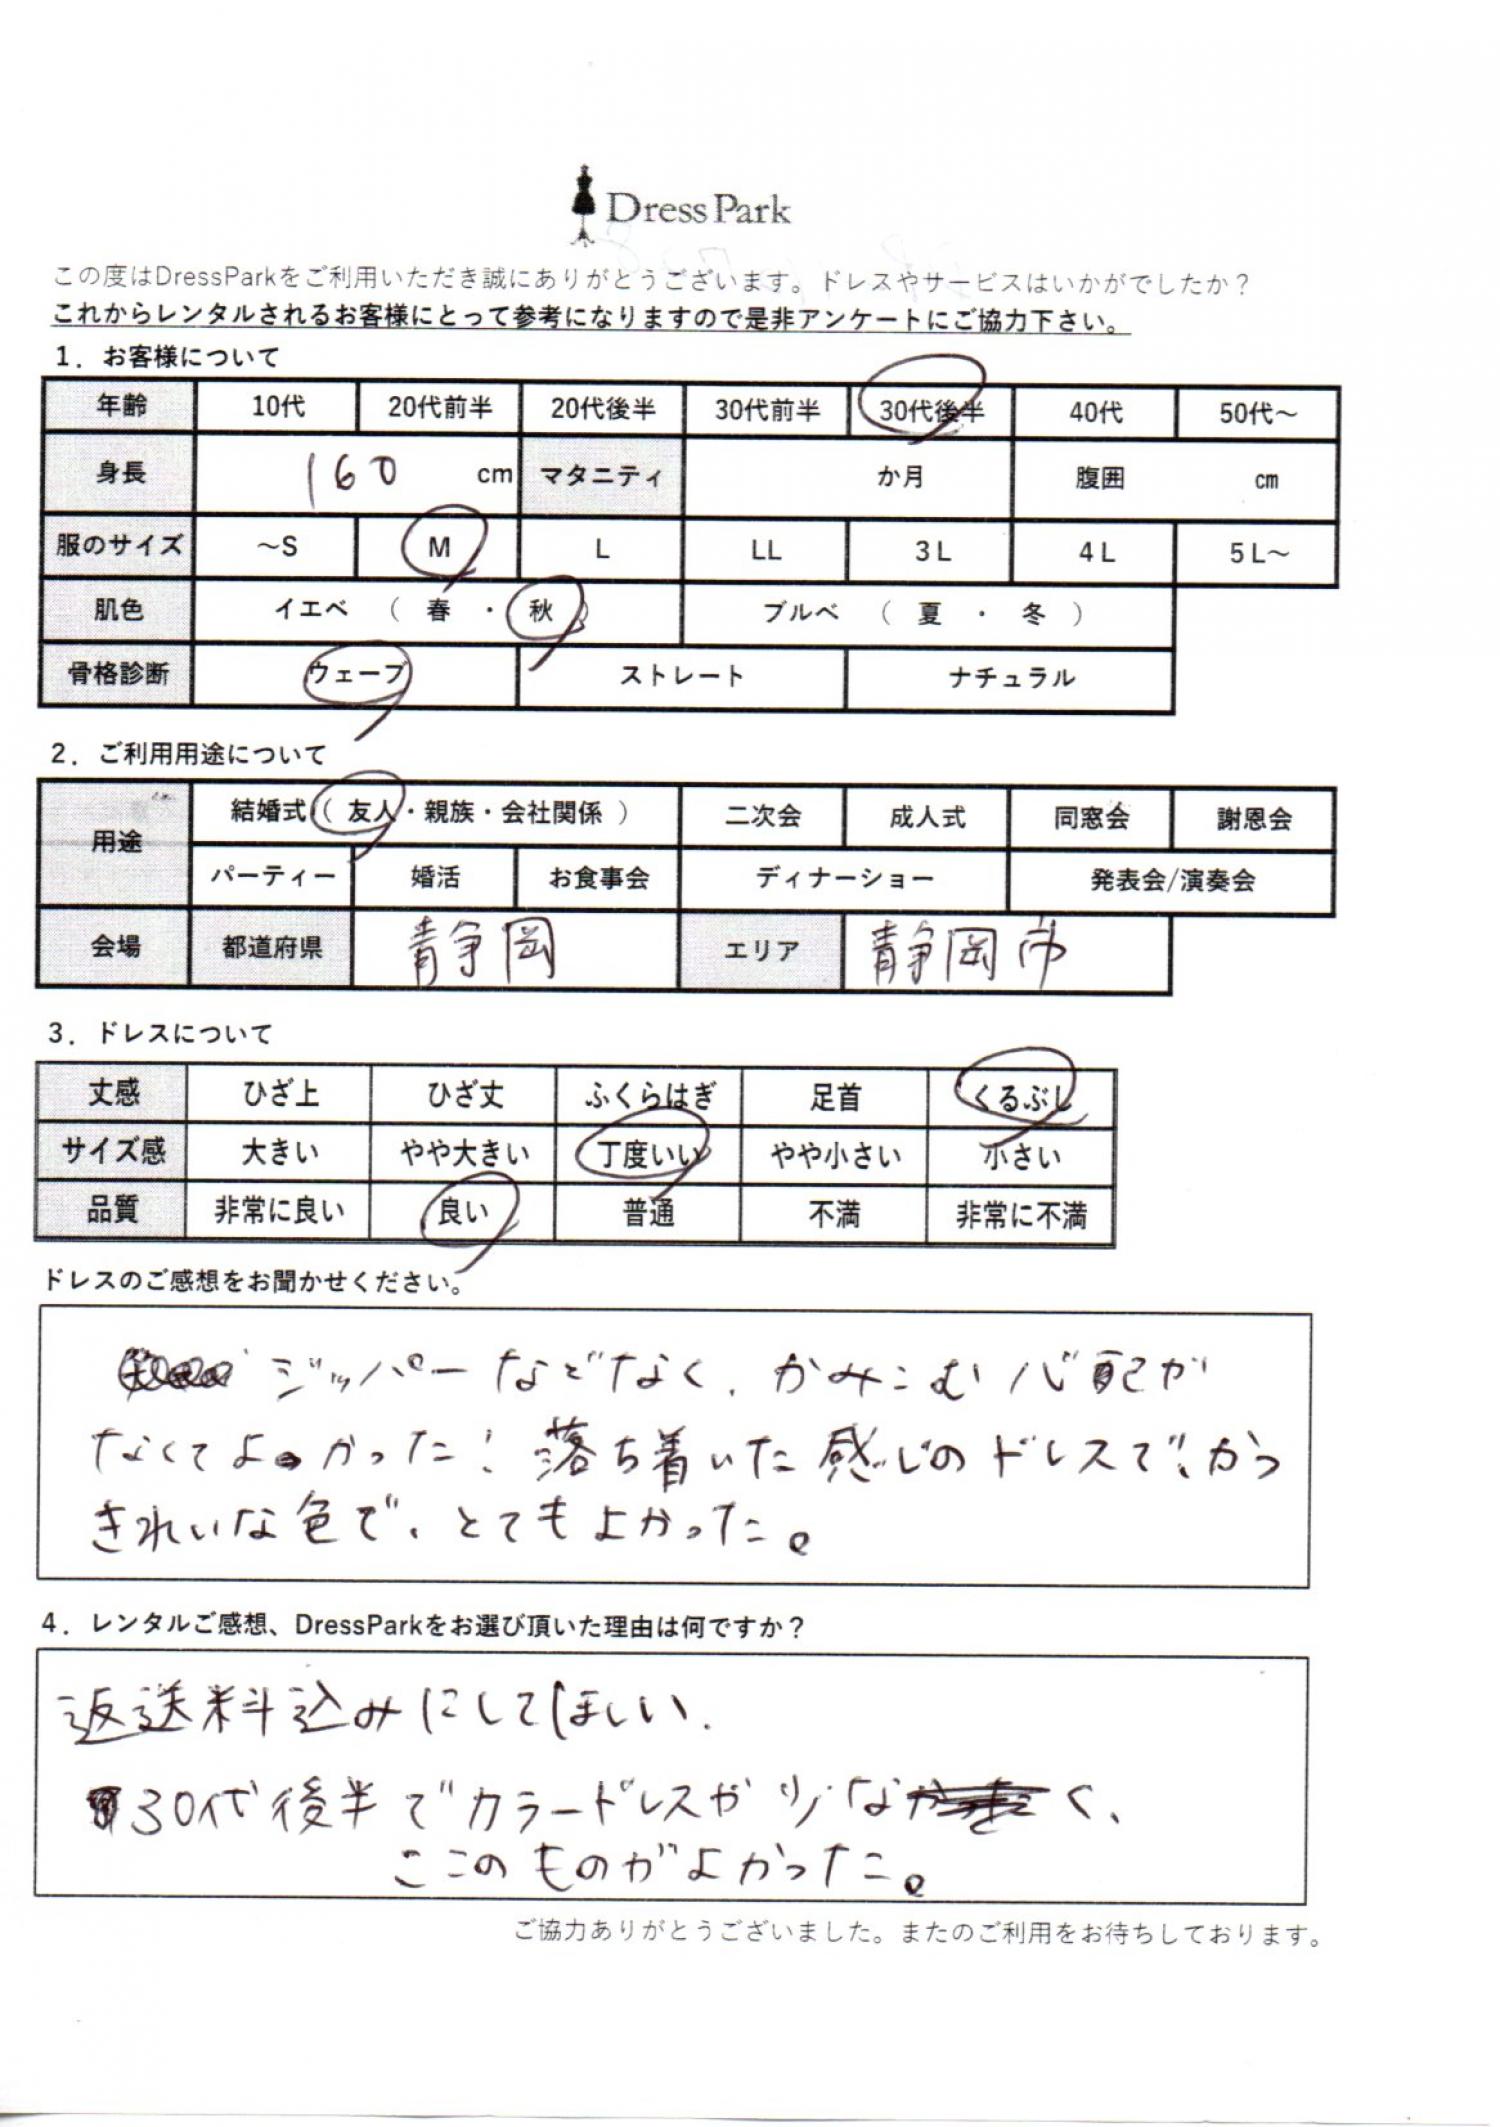 Dress Park
この度はDressParkをご利用いただき誠にありがとうございます。ドレスやサービスはいかがでしたか?
これからレンタルされるお客様にとって参考になりますので是非アンケートにご協力下さい。
1. お客様について
年齢 10代 20代前半 20代後半 30代前半 30代後半 40代 50代～
身長 160 cm マタニティ か月 腹囲 cm
服のサイズ ～S M L LL 3L 4L 5L～
肌色 イエベ ( 春 ・ 秋 ) ブルベ ( 夏 ・ 冬 )
骨格診断 ウェーブ ストレート ナチュラル
2. ご利用用途について
用途 結婚式 ( 友人・親族・会社関係 ) 二次会 成人式 同窓会 謝恩会
パーティー 婚活 お食事会 ディナーショー 発表会/演奏会
会場 都道府県 静岡 エリア 静岡市
3. ドレスについて
丈感 ひざ上 ひざ丈 ふくらはぎ 足首 くるぶし
サイズ感 大きい やや大きい 丁度いい やや小さい 小さい
品質 非常に良い 良い 普通 不満 非常に不満
ドレスのご感想をお聞かせください。
ジッパーなどなく、かみこむ心配が
なくてよかった! 落ち着いた感じのドレスで、かつ
きれいな色で、とてもよかった。
4. レンタルご感想、DressParkをお選び頂いた理由は何ですか?
返送料込みにしてほしい.
30代後半でカラードレスが少なく、
ここのものがよかった。
ご協力ありがとうございました。またのご利用をお待ちしております。